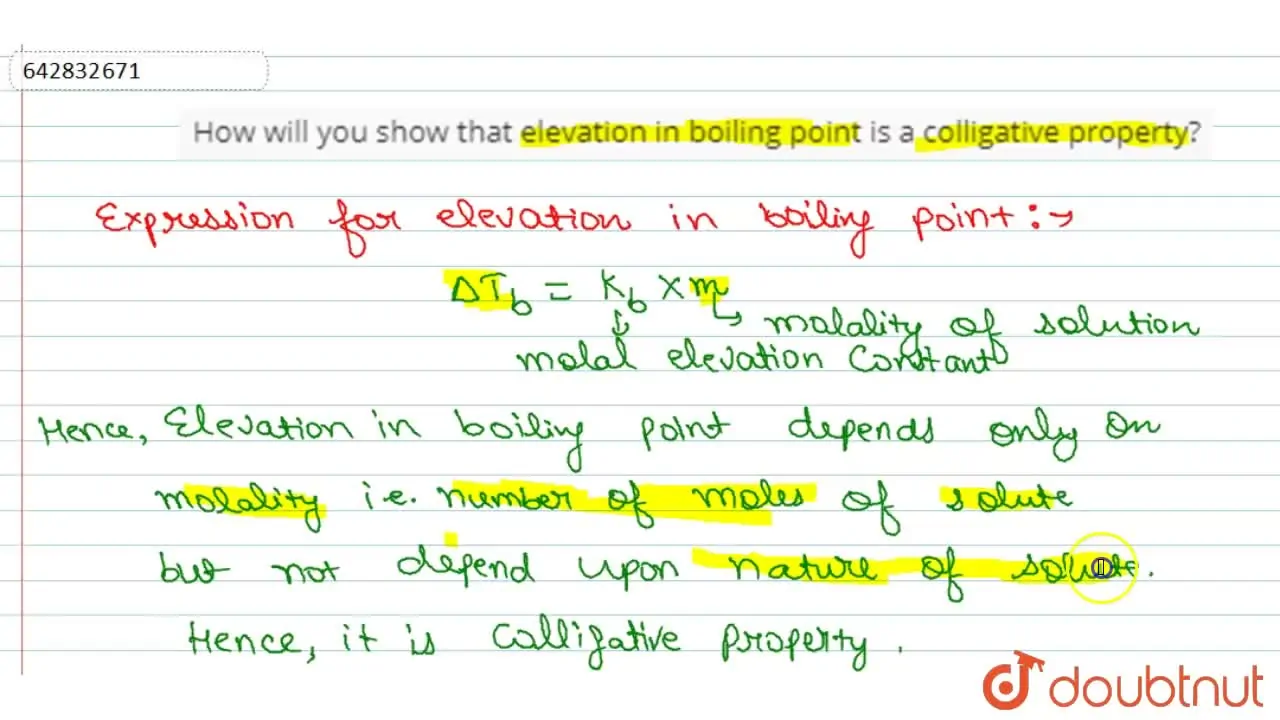 642832671
How will you show that elevation in boiling point is a colligative property?
Expression for elevation in boiling point :→
ΔTb = Kb × m
↳ molality of solution
molal elevation constant
Hence, Elevation in boiling point depends only on
molality i.e. number of moles of solute
but not depend upon nature of solute.
Hence, it is colligative property.
doubtnut